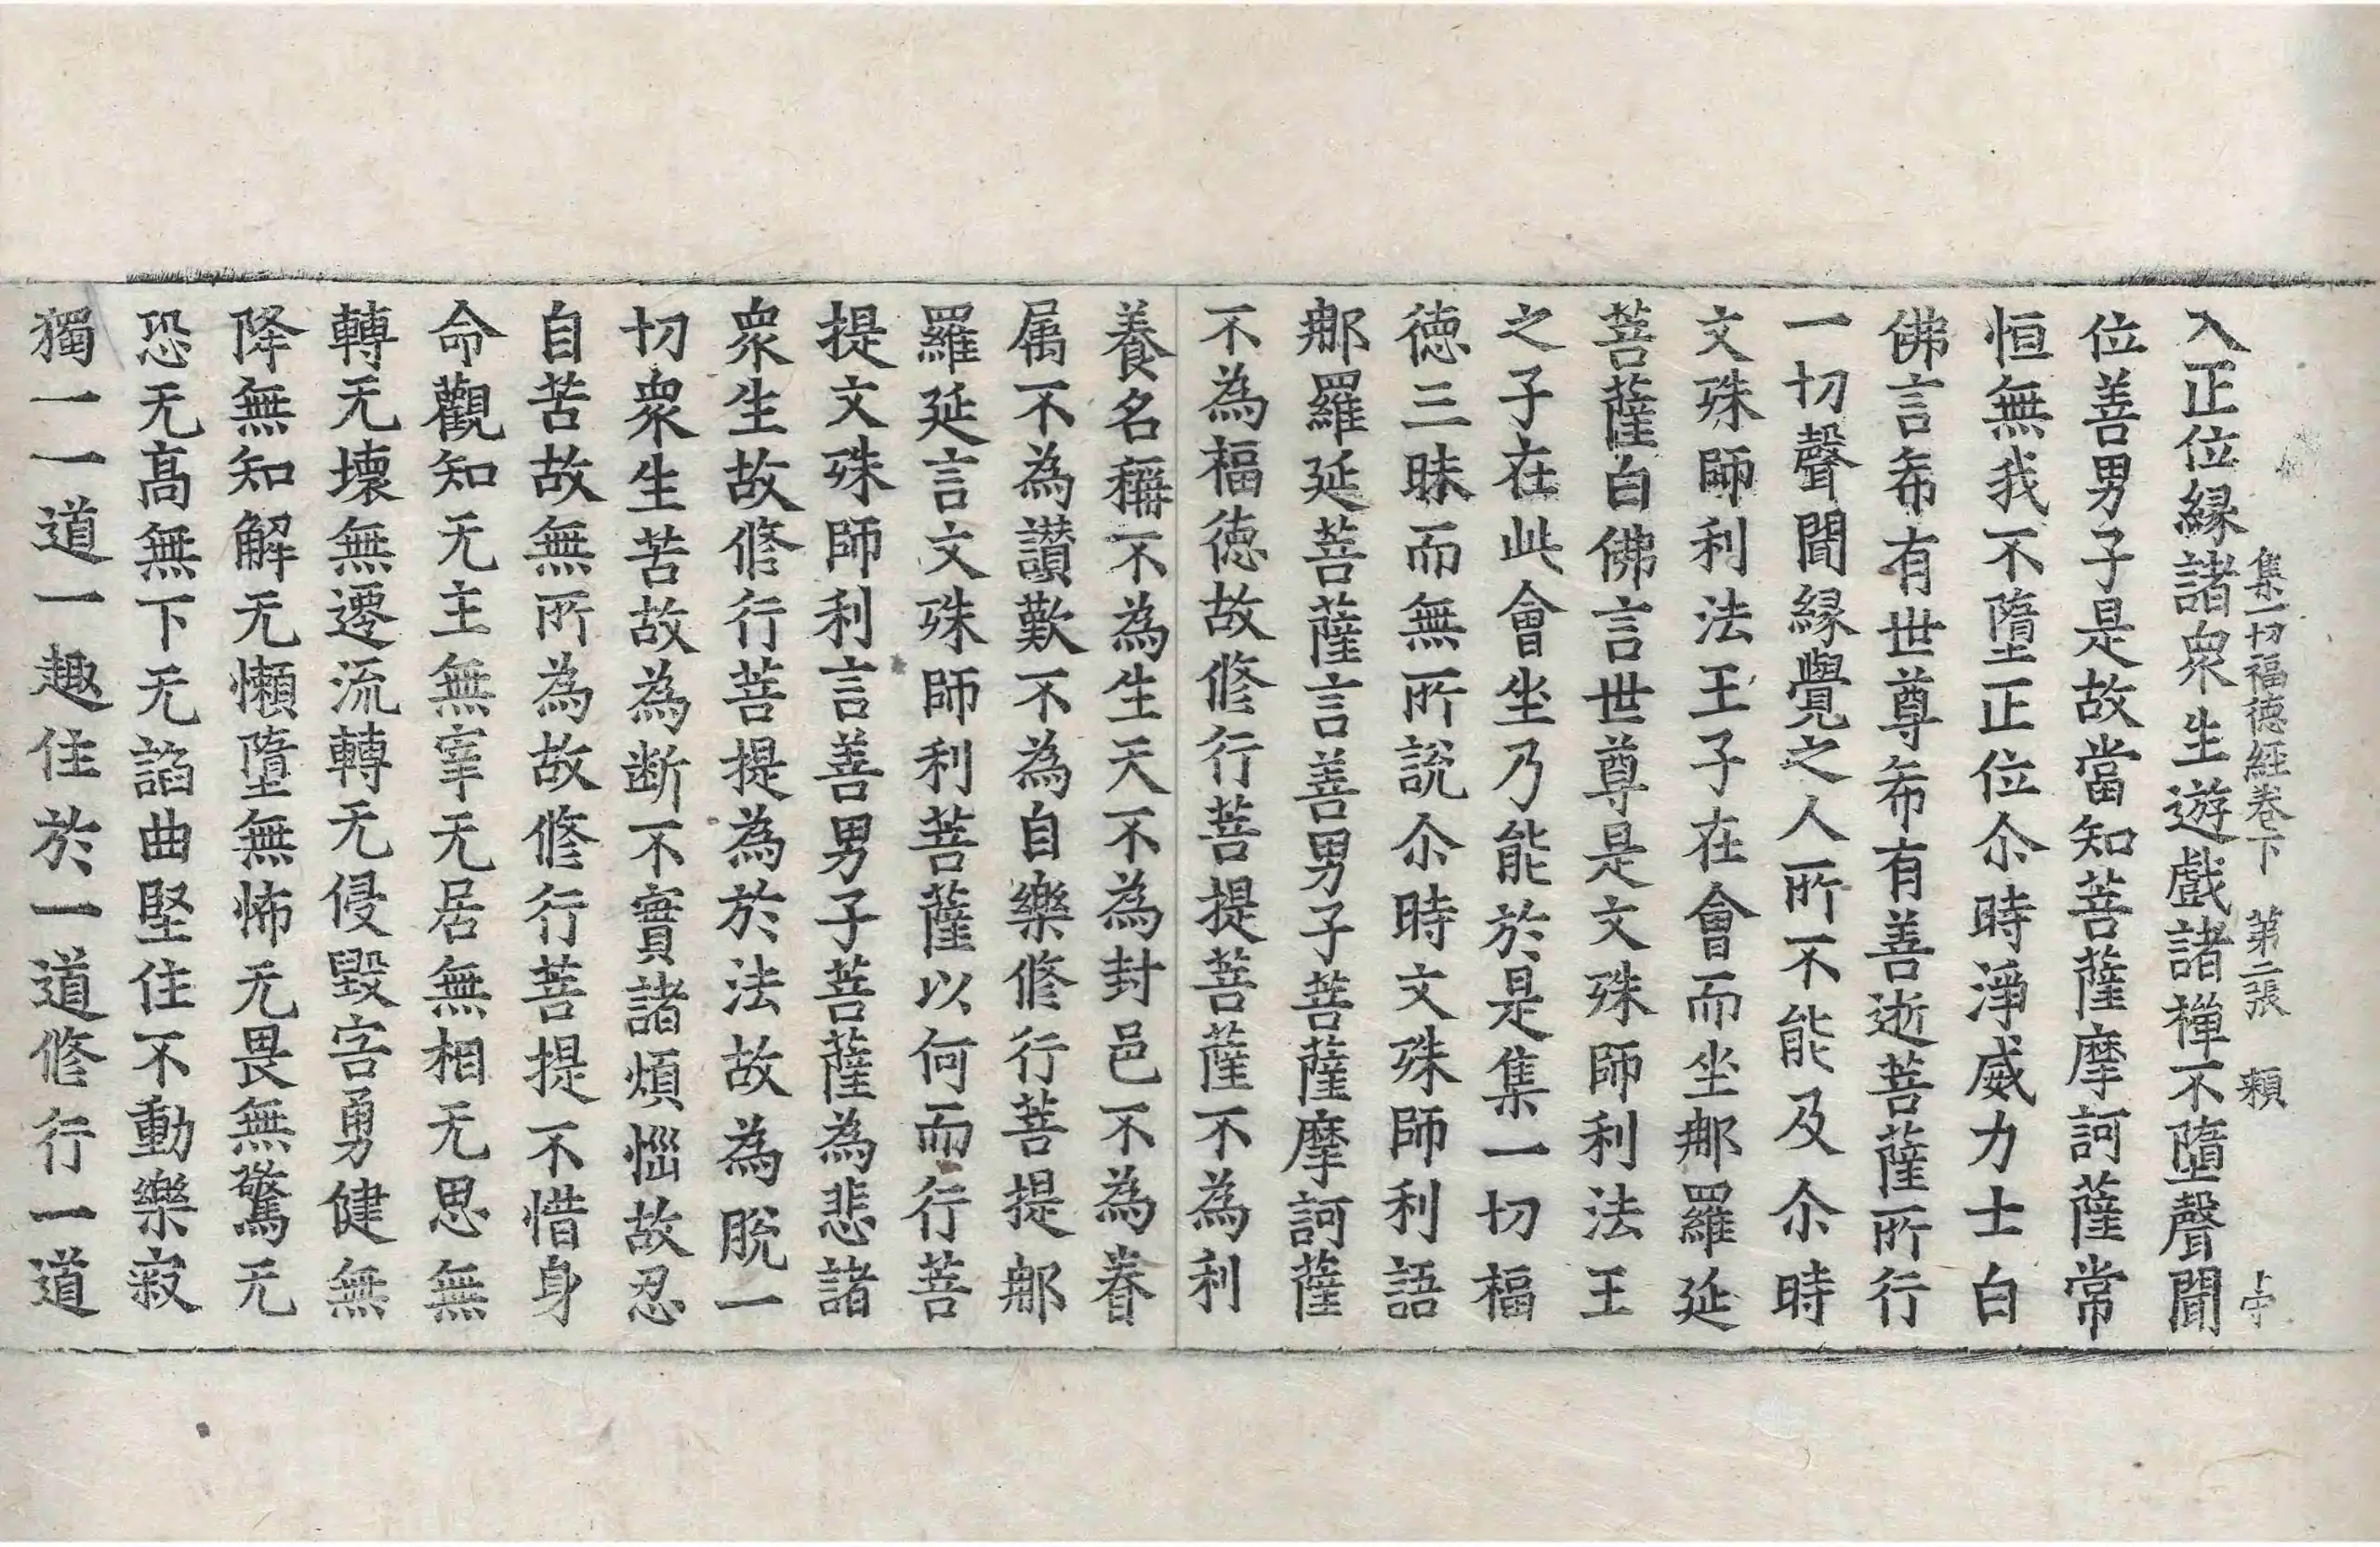 集一切福德經卷下　第二張　頼
入正位縁諸衆生遊戲諸禪不墮聲聞
位善男子是故當知菩薩摩訶薩常
恒無我不墮正位尒時淨威力士白
佛言希有世尊希有善逝菩薩所行
一切聲聞縁覺之人所不能及尒時
文殊師利法王子在會而坐那羅延
菩薩白佛言世尊是文殊師利法王
之子在此會坐乃能於是集一切福
德三昧而無所說尒時文殊師利語
那羅延菩薩言善男子菩薩摩訶薩
不為福德故修行菩提菩薩不為利
養名稱不為生天不為封邑不為眷
属不為讃歎不為自樂修行菩提那
羅延言文殊師利菩薩以何而行菩
提文殊師利言善男子菩薩為悲諸
衆生故修行菩提為於法故為脫一
切衆生苦故為断不實諸煩惱故忍
自苦故無所為故修行菩提不惜身
命觀知无主無宰无居無相无思無
轉无壞無遷流轉无侵毀害勇健無
降無知解无懶墮無怖无畏無驚无
恐无髙無下无諂曲堅住不動樂寂
獨一一道一趣住於一道修行一道